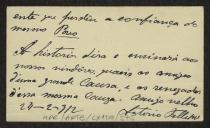 ente que perdeu a confiança do
mesmo Povo.
A historia dira e ensinará aos
nosso vindouros, quaes os amigos
d'uma grande Causa, e os renegados
d'essa mesma Causa. Amigo velho
24-2-912 Antonio